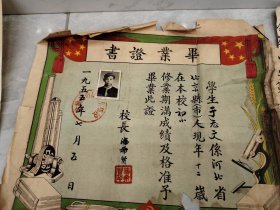 畢業證書
學生于志文係河北省
北京縣市人現年十二歲
在本校初小
修業期滿成績及格准予
畢業此證
校長
一九五 年七月五日